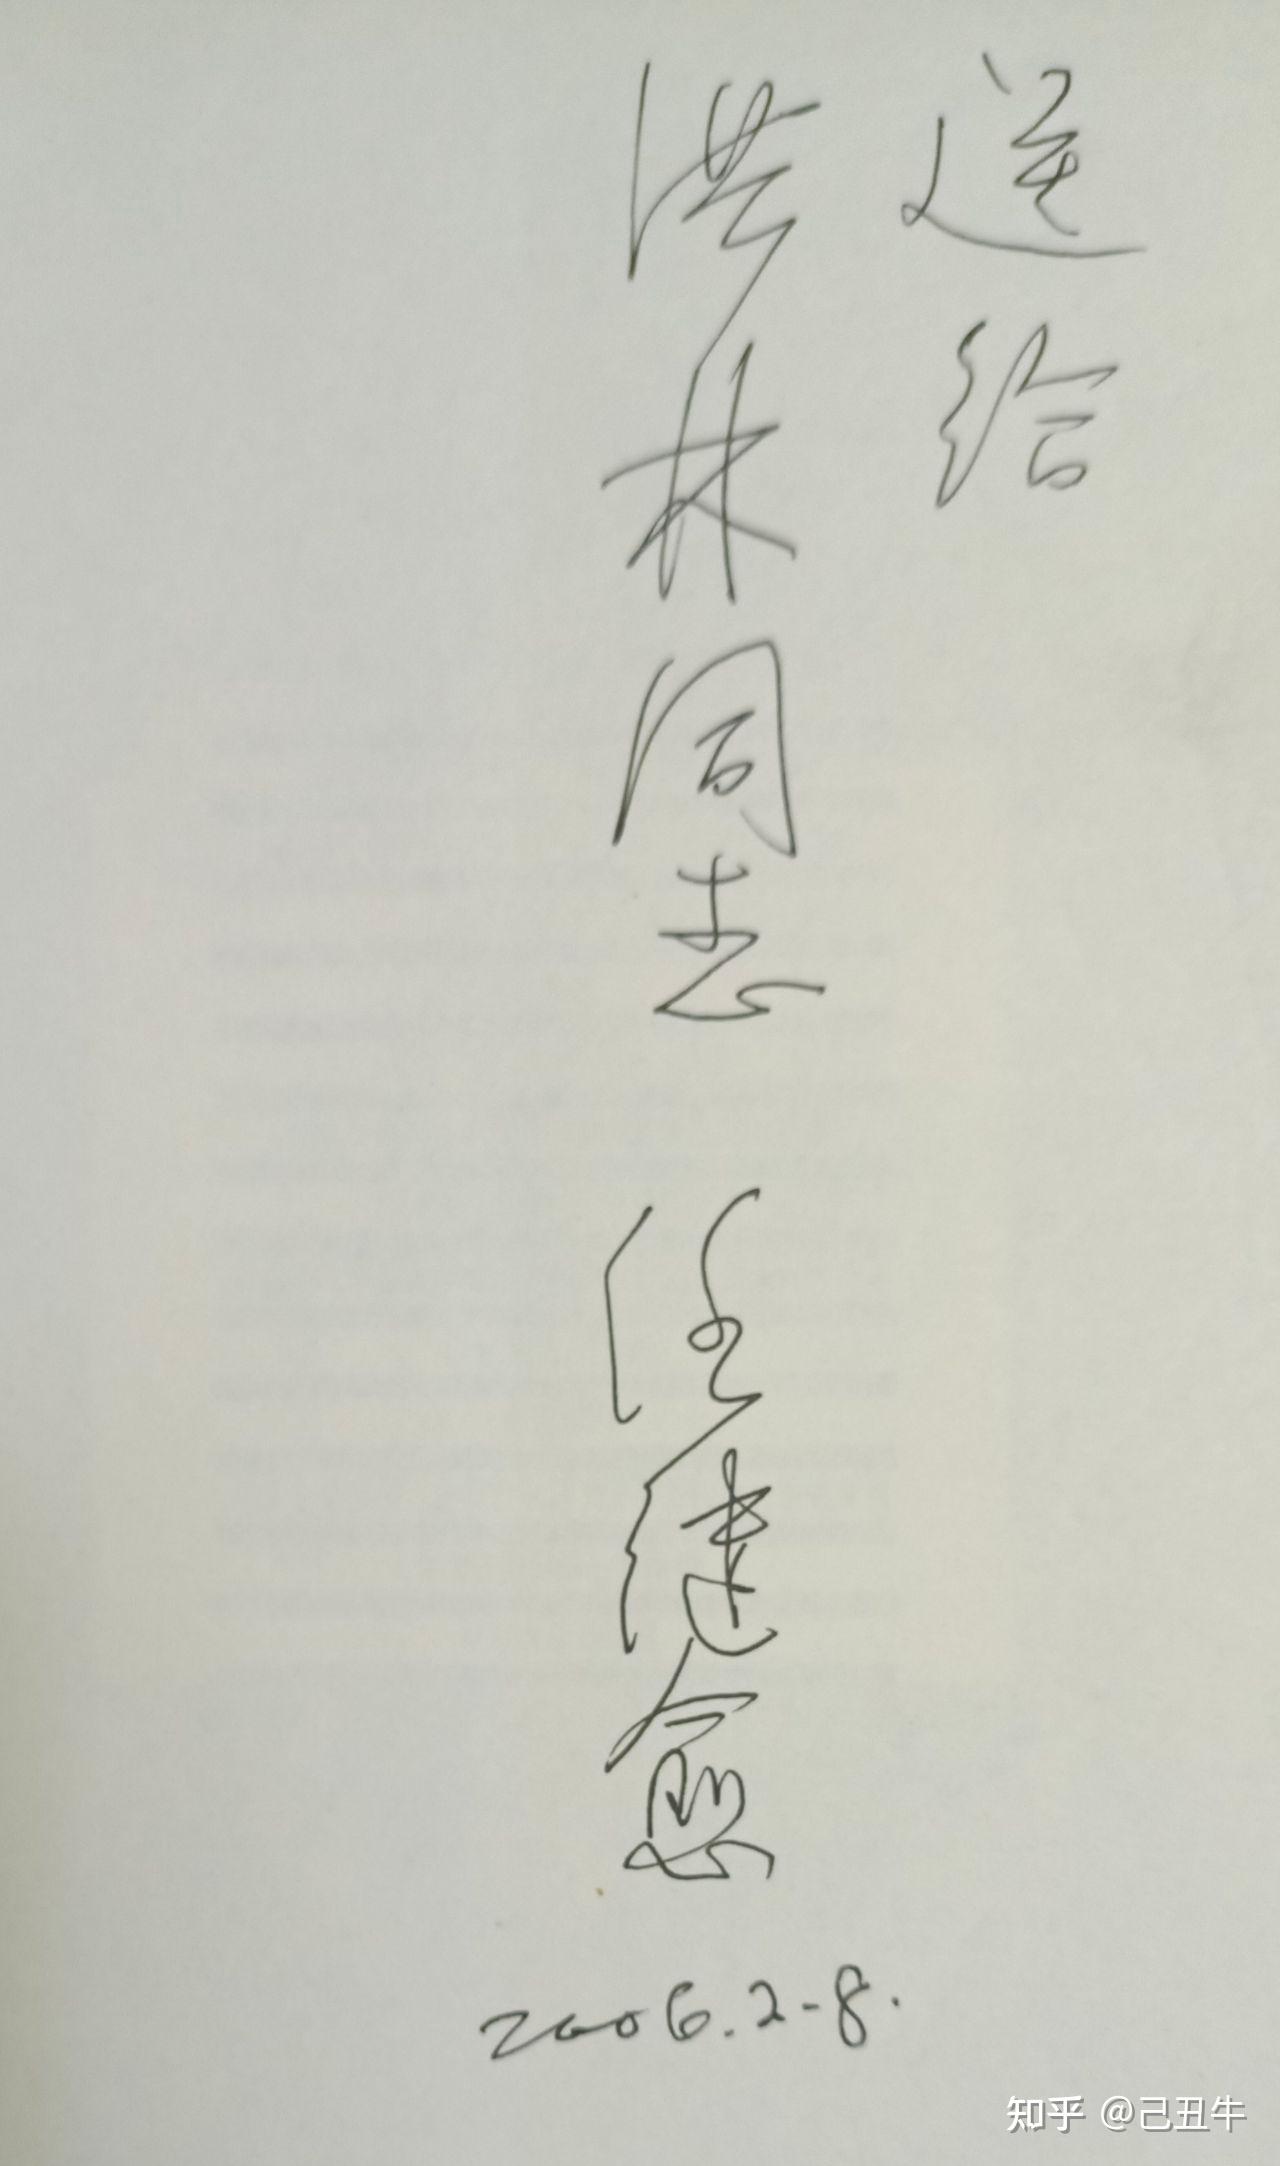 送给
洪林同志
任建愈
2006.2-8.
知乎 @己丑牛